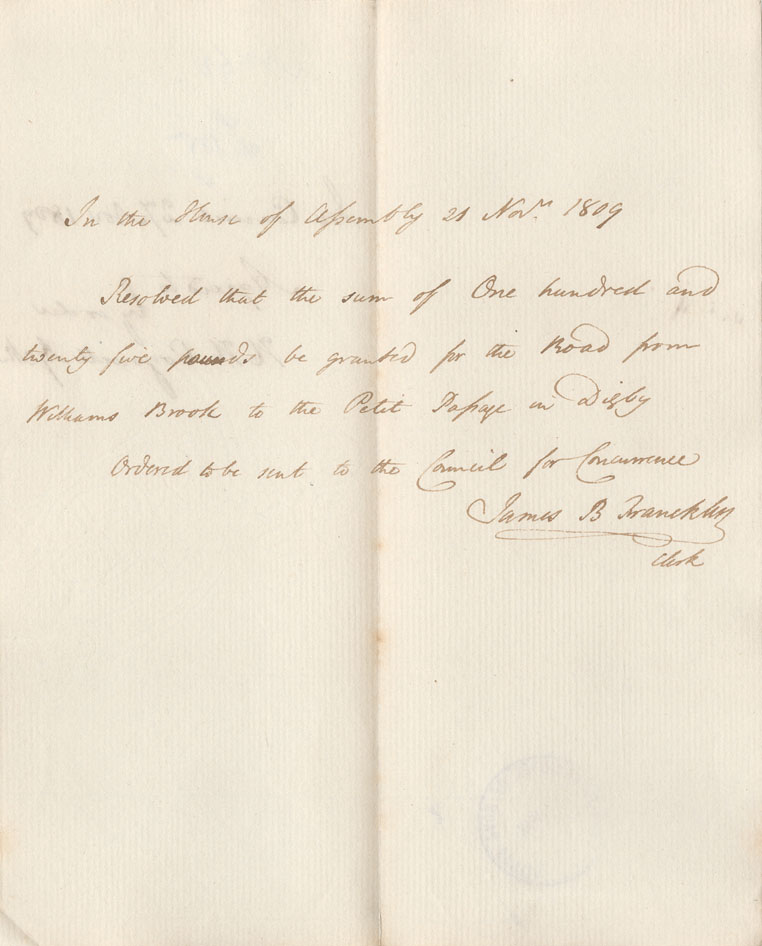 In the House of Assembly 21 Novr. 1809
Resolved that the sum of One hundred and
twenty five pounds be granted for the Road from
Williams Brook to the Petit Passage in Digby
Ordered to be sent to the Council for Concurrence
James B Francklin
Clerk